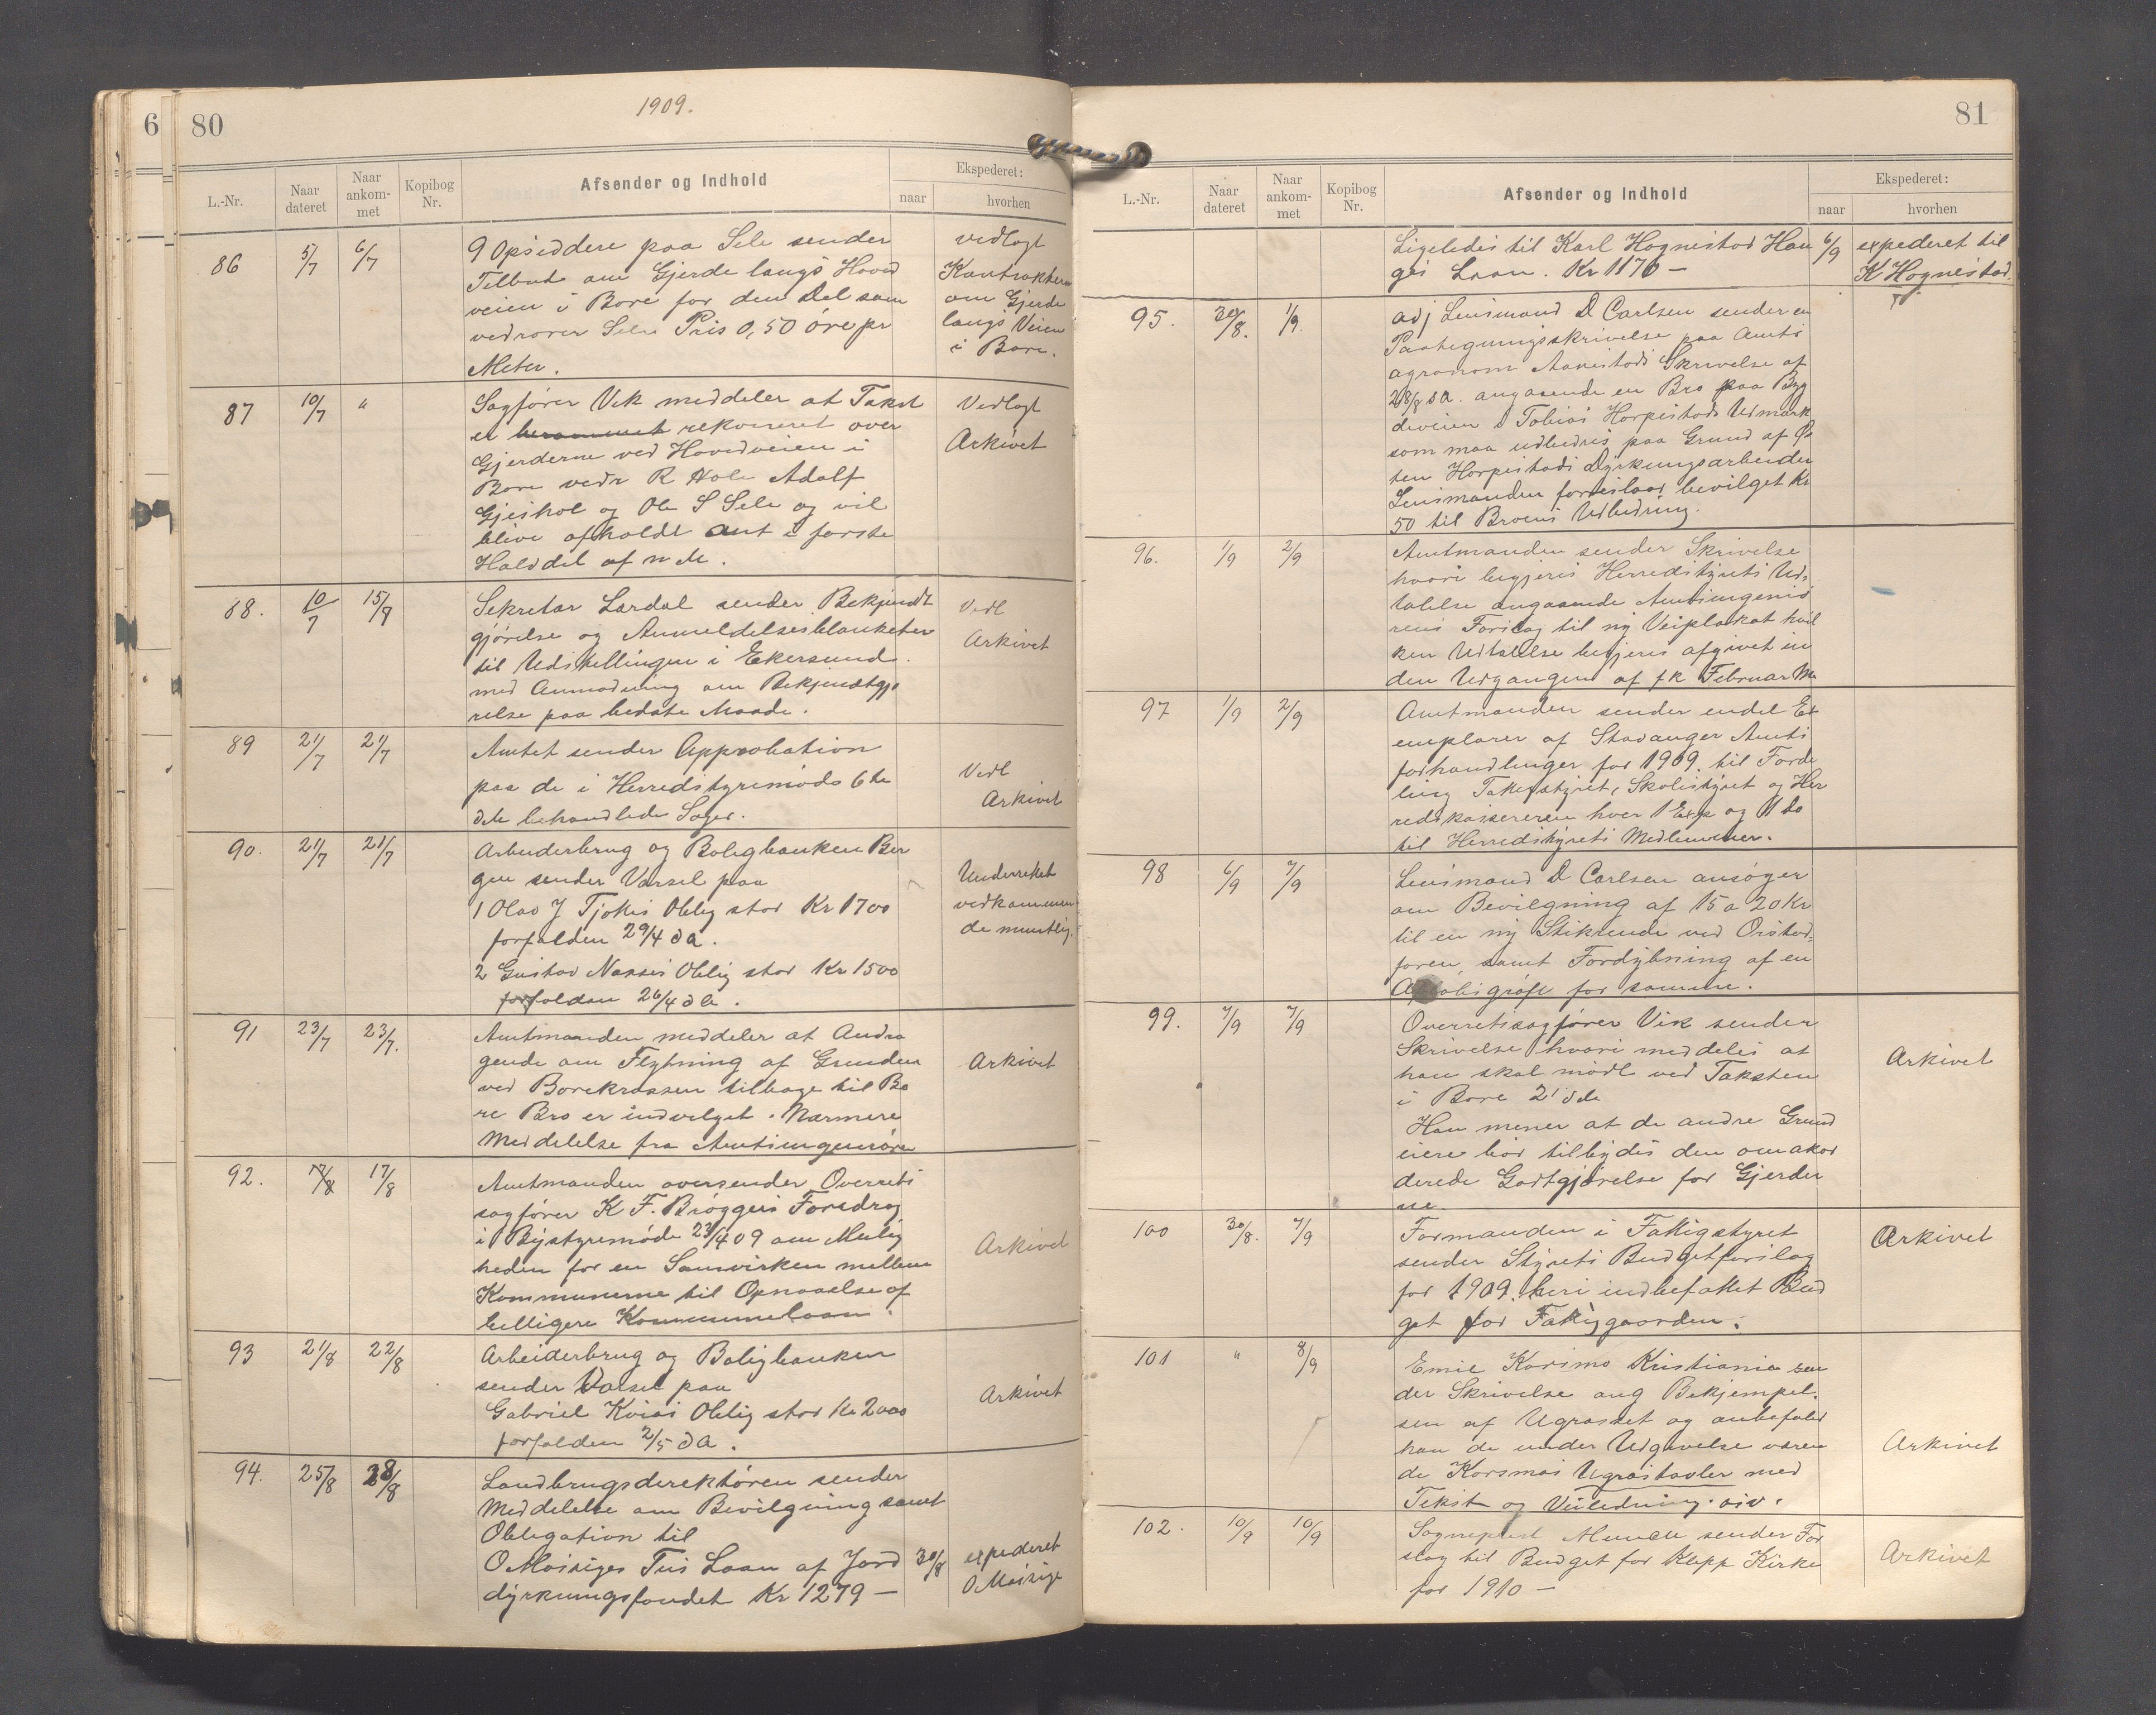 6
80
1909.
L.-Nr.
Naar dateret
Naar ankom-met
Kopibog Nr.
Afsender og Indhold
Ekspederet:
naar
hvorhen
86 5/7 6/7 9 Opsiddere paa Sele sender vedlagt
Tilbud om Gjerde langs Hoved Kontrakterne
veien i Bore for den Del som om Gjerde
vedrører Sele Pris 0,50 øre pr langs Veien
Meter. i Bore.
87 10/7 " Sagfører Vik meddeler at Takst Vedlagt
er berammet rekvireret over Arkivet
Gjerderne ved Hovedveien i
Bore vedr R Hole Adolf
Gjeshol og Ole S Sele og vil
blive afholdt ant i første
Halvdel af n de.
88. 10/7 15/9 Sekretær Lardal sender Bekjendt Vedl
gjørelse og Anmeldelsesblanketer Arkivet
til Udstillingen i Ekersund.
med Anmodning om Bekjendtgjø
relse paa bedste Maade.
89 21/7 21/7 Amtet sender Approbation
paa de i Herredstyremøde 6te Vedl
ds behandlede Sager. Arkivet
90. 21/7 21/7 Arbeiderbrug og Boligbanken Ber
gen sender Varsel paa Underrettet
1 Olav J Tjøtts Oblig stor Kr 1700 vedkommen
forfalden 29/4 d A. de mundtlig.
2 Gustav Næsses Oblig stor Kr 1500
forfalden 26/4 d A.
91 23/7 23/7. Amtmanden meddeler at Andra
gende om Flytning af Grinden Arkivet
ved Borekrossen tilbage til Bo
re Bro er indvilget. Nærmere
Meddelelse fra Amtsingeniøren
92. 17/8 17/8 Amtmanden oversender Overrets
sagfører K F. Brøggers Foredrag
i Bystyremøde 23/4 09 om Mulig Arkivet
heden for en Samvirken mellem
Kommunerne til Opnaaelse af
billigere Kommunelaan.
93 21/8 22/8 Arbeiderbrug og Boligbanken
sender Varsel paa Arkivet
Gabriel Kvias Oblig stor Kr 2000
forfalden 2/5 d A.
94. 25/8 28/8 Landbrugsdirektøren sender
Meddelelse om Bevilgning samt
Obligation til
O Moisiges Tus Laan af Jord 30/8 expederet
dyrkningsfondet Kr 1279 — O Moisige
81
L.-Nr.
Naar dateret
Naar ankom-met
Kopibog Nr.
Afsender og Indhold
Ekspederet:
naar
hvorhen
Ligeledes til Karl Hognestad Hau 6/9 expederet til
ges Laan. Kr 1170 — K Hognestad.
95. 30/8. 1/9. adj Lensmand D Carlsen sender en
Paategningsskrivelse paa Amts
agronom Aanestads Skrivelse af
28/8 d A. angaaende en Bro paa Byg
deveien i Tobias Horpestads Udmark
som maa udbedres paa Grund af Øs
ten Horpestads Dyrkningsarbeider
Lensmanden foreslaar bevilget Kr
50 til Broens Udbedring.
96. 1/9 2/9 Amtmanden sender Skrivelse
hvori begjeres Herredstyrets Ud
talelse angaaende Amtsingeniø
rens Forslag til ny Veiplakat hvil
ken Udtalelse begjeres afgivet in
den Udgangen af f k Februar Md
97 1/9 2/9 Amtmanden sender endel Ex
emplarer af Stavanger Amts
forhandlinger for 1909. til Forde
ling Fatigstyret, Skolestyret og Her
redskassereren hver 1 Exp og 11 do
til Herredstyrets Medlemmer.
98 6/9 7/9 Lensmand D Carlsen ansøger
om Bevilgning af 15 a 20 Kr
til en ny Stikrende ved Orstad-
foren, samt Fordybning af en
Afløbsgrøft for samme.
99. 7/9 7/9 Overretssagfører Vik sender
Skrivelse hvori meddeles at Arkivet
han skal møde ved Taksten
i Bore 21 ds
Han mener at de andre Grund
eiere bør tilbydes den omakor
derede Godtgjørelse for Gjerder
ne.
100 30/8. 7/9 Formanden i Fattigstyret Arkivet
sender Styrets Budgetforslag
for 1909. heri indbefattet Bud
get for Fattiggaarden.
101 " 8/9 Emil Korsmo Kristiania sen
der Skrivelse ang Bekjempel.
sen af Ugræsset og anbefaler
han de under Udgivelse væren Arkivet
de Korsmos Ugræstavler med
Tekst og Veiledning. oiv.
102. 10/9 10/9 Sogneprest Munch sender For
slag til Budget for Klepp Kirke Arkivet
for 1910 —